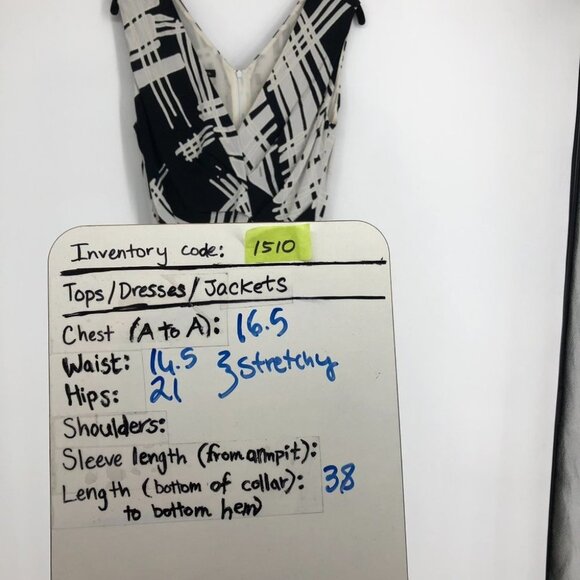 Inventory code: 1510
Tops/Dresses/Jackets
Chest (A to A): 16.5
Waist: 14.5 } Stretchy
Hips: 21
Shoulders:
Sleeve length (from armpit):
Length (bottom of collar): 38
to bottom hem)